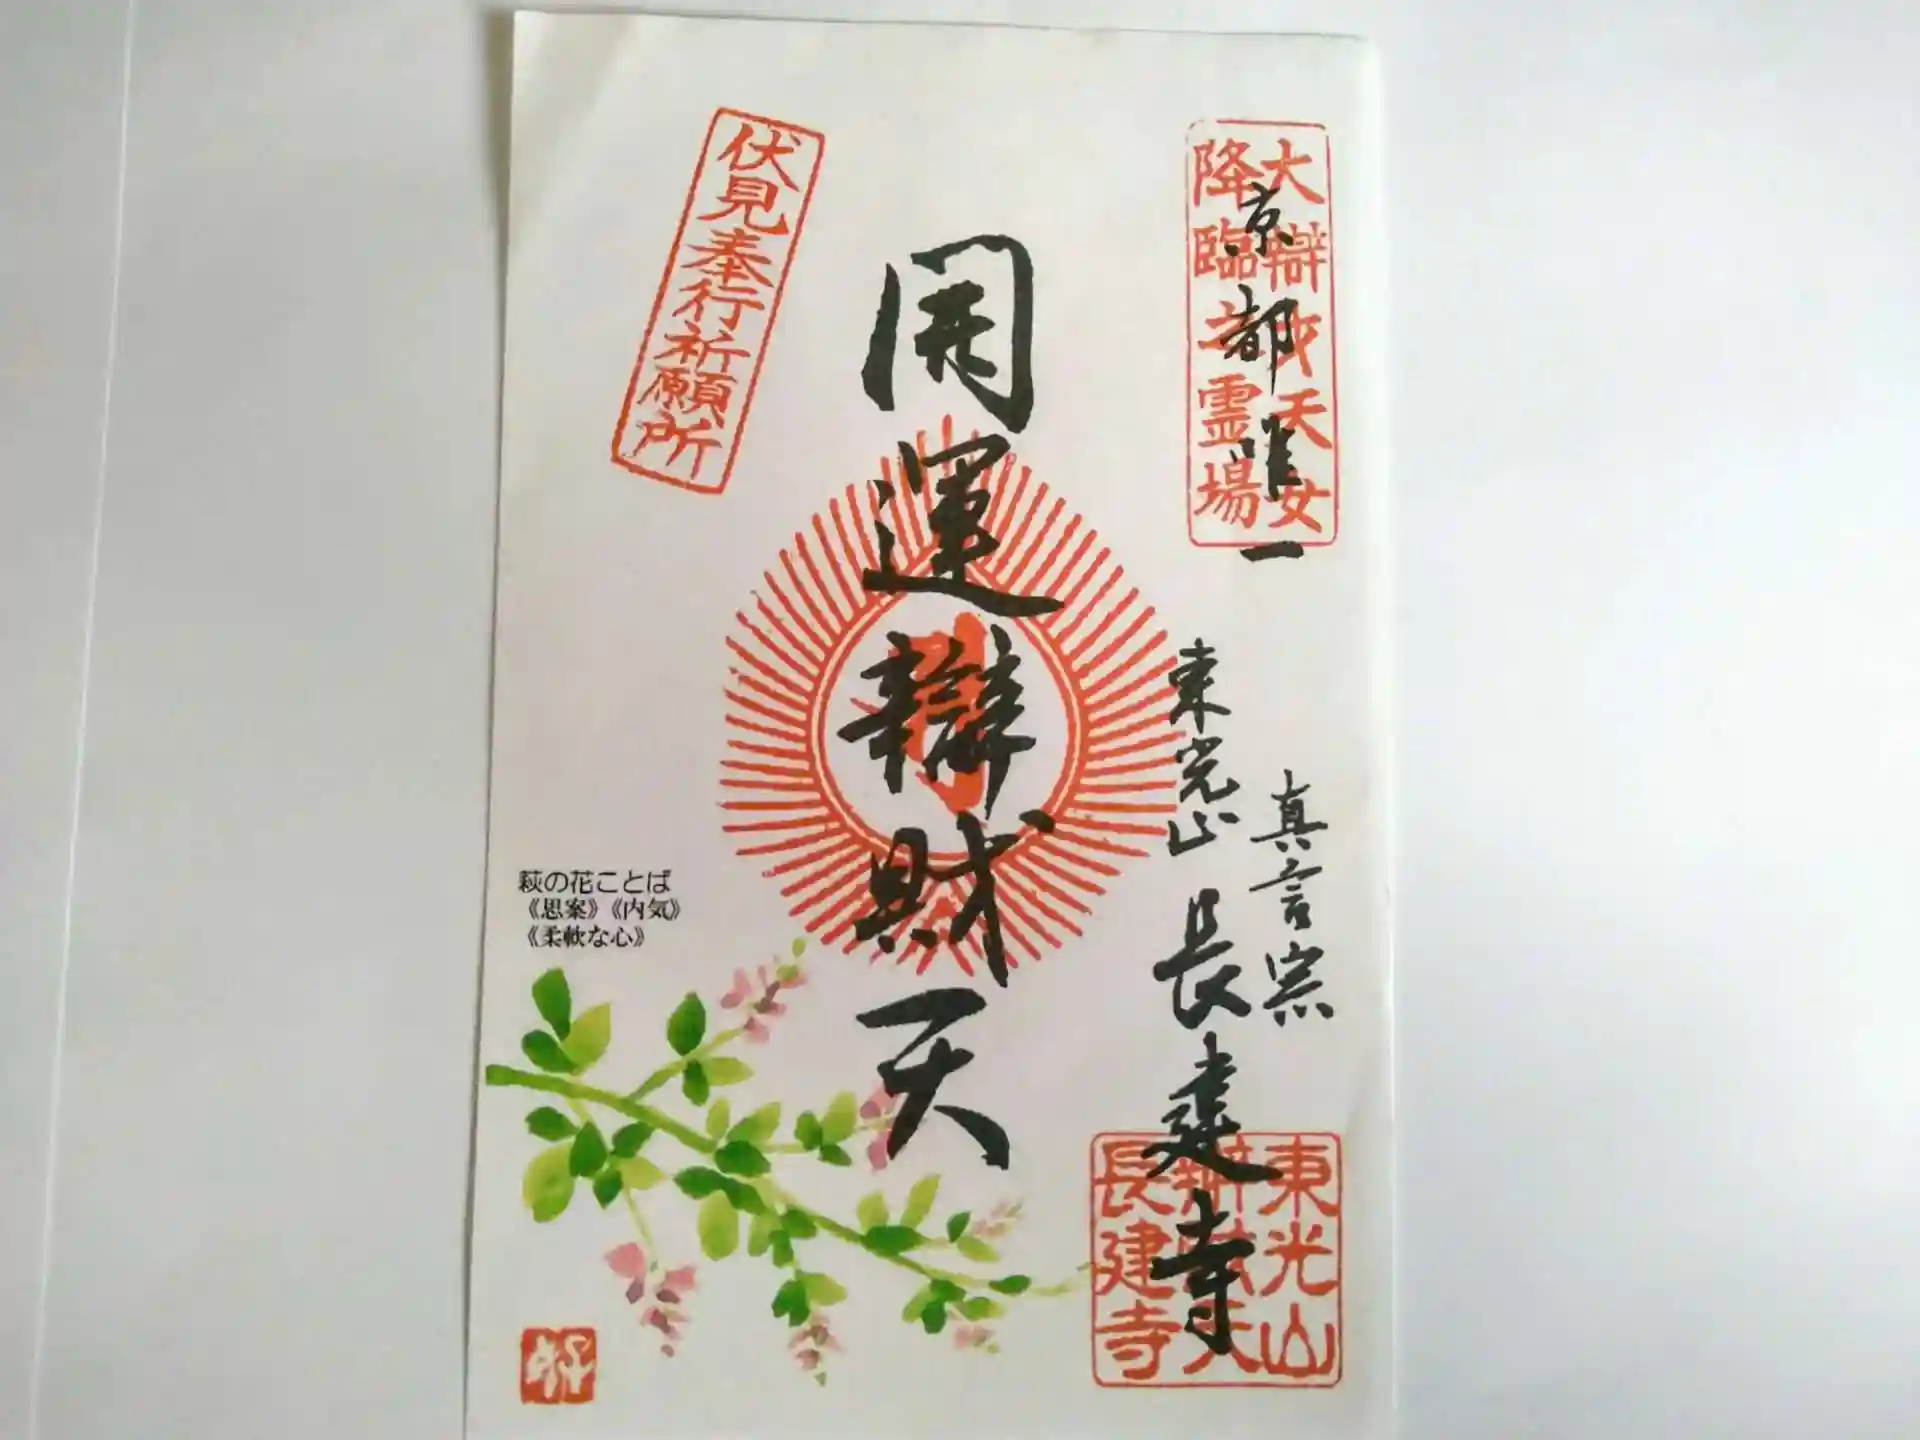 大辨才天女
降臨之霊場
京都唯一
真言宗
東光山 長建寺
開運辯財天
伏見奉行祈願所
萩の花ことば
《思案》《内気》
《柔軟な心》
東光山
辨財天
長建寺